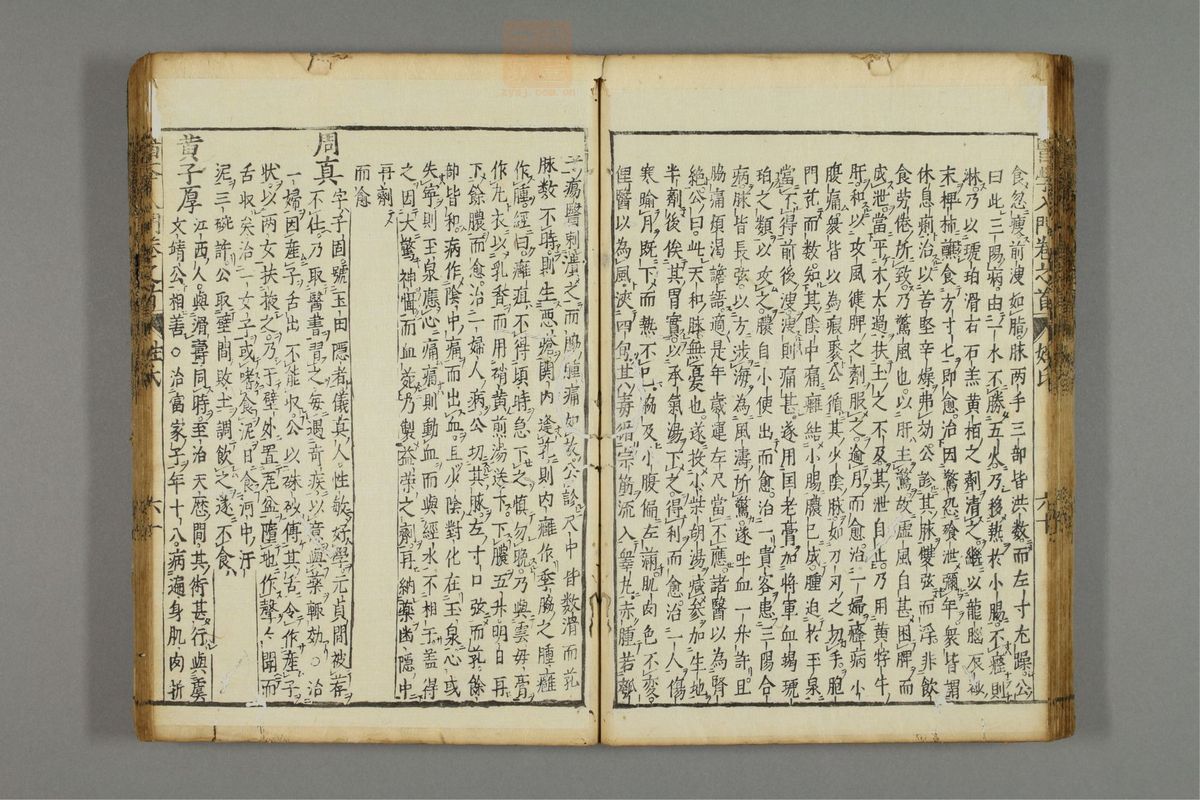 食忽瘦前溲如脂脉两手三部皆洪数而左寸尤躁公
曰此三陽病由一水不勝五火乃移熱於小腸不癃則
淋乃以琥珀滑石石羔黄栢之劑清之繼以龍腦辰砂
末柿蘸食方寸七即愈治因驚恐飱泄彌年衆皆謂
休息痢治以苦堅辛燥弗効公診其脉雙弦而浮非飲
食勞倦所致乃驚風也以肝主驚故虛風自甚困脾而
成泄當平木太過扶土之不及其泄自止乃用黄牸牛
肝和以攻風健脾之劑服之逾月而愈治一婦癃病小
腹痛衆皆以為瘕聚公循其少陰脉如刀刃之切手胞
門芤而数知其陰中痛癰結小腸膿已成腫迫於玉泉
當不得前後溲溲則痛甚遂用国老膏加將軍血竭琥
珀之類以攻之膿自小使出而愈治一貴客患三陽合
病脉皆長弦以方涉海為風濤所驚遂吐血一升許且
脇痛煩渴譫語適是年歲運左尺當不應諸醫以為腎
絶公曰此天和脉無憂也遂投小柴胡湯減參加生地
半劑後俟其胃實以承氣湯下之得利而愈治一人傷
寒踰月既下而熱不已脇及小腹偏左滿肌肉色不変
俚醫以為風浹四旬其毒循宗筋流入睾丸赤腫若瓠
子瘍醫刺潰之而脇腫痛如故公診尺中皆数滑而芤
脉数不時則生惡瘡関內逢芤則內癰作季脇之腫癰
作厲經曰癰疽不得頃時急下之慎勿晚乃與雲毋膏
作丸衣以乳香而用硝黄煎湯送下下膿五升明日再
下餘膿而愈治一婦人病公切其脉左寸口弦而芤餘
部皆和病作陰中痛而出血且少陰對化在玉泉心或
失寧則玉泉應心痛痛則動血而與經水不相干蓋得
之因大驚神懾而血菀乃製益榮之劑再納藥幽隱中
再劑
而愈
周真
字子固號玉田隱者儀真人性敏好學元貞間被荐
不仕乃取醫書習之每遇竒疾以意與藥輙効○治
一婦因産子舌出不能収公以硃砂傅其舌令作産子
狀以两女扶掖之乃于壁外置瓦盆墮地作聲聲聞而
舌収矣治一女子或嗜食泥日食河中汙
泥三碗許公取壁間敗土調飲之遂不食
黄子厚
江西人與滑壽同時至治天厯間其術甚行與虞
文靖公相善○治富家子年十八病遍身肌肉折
醫學入門卷之首
姓氏
六十